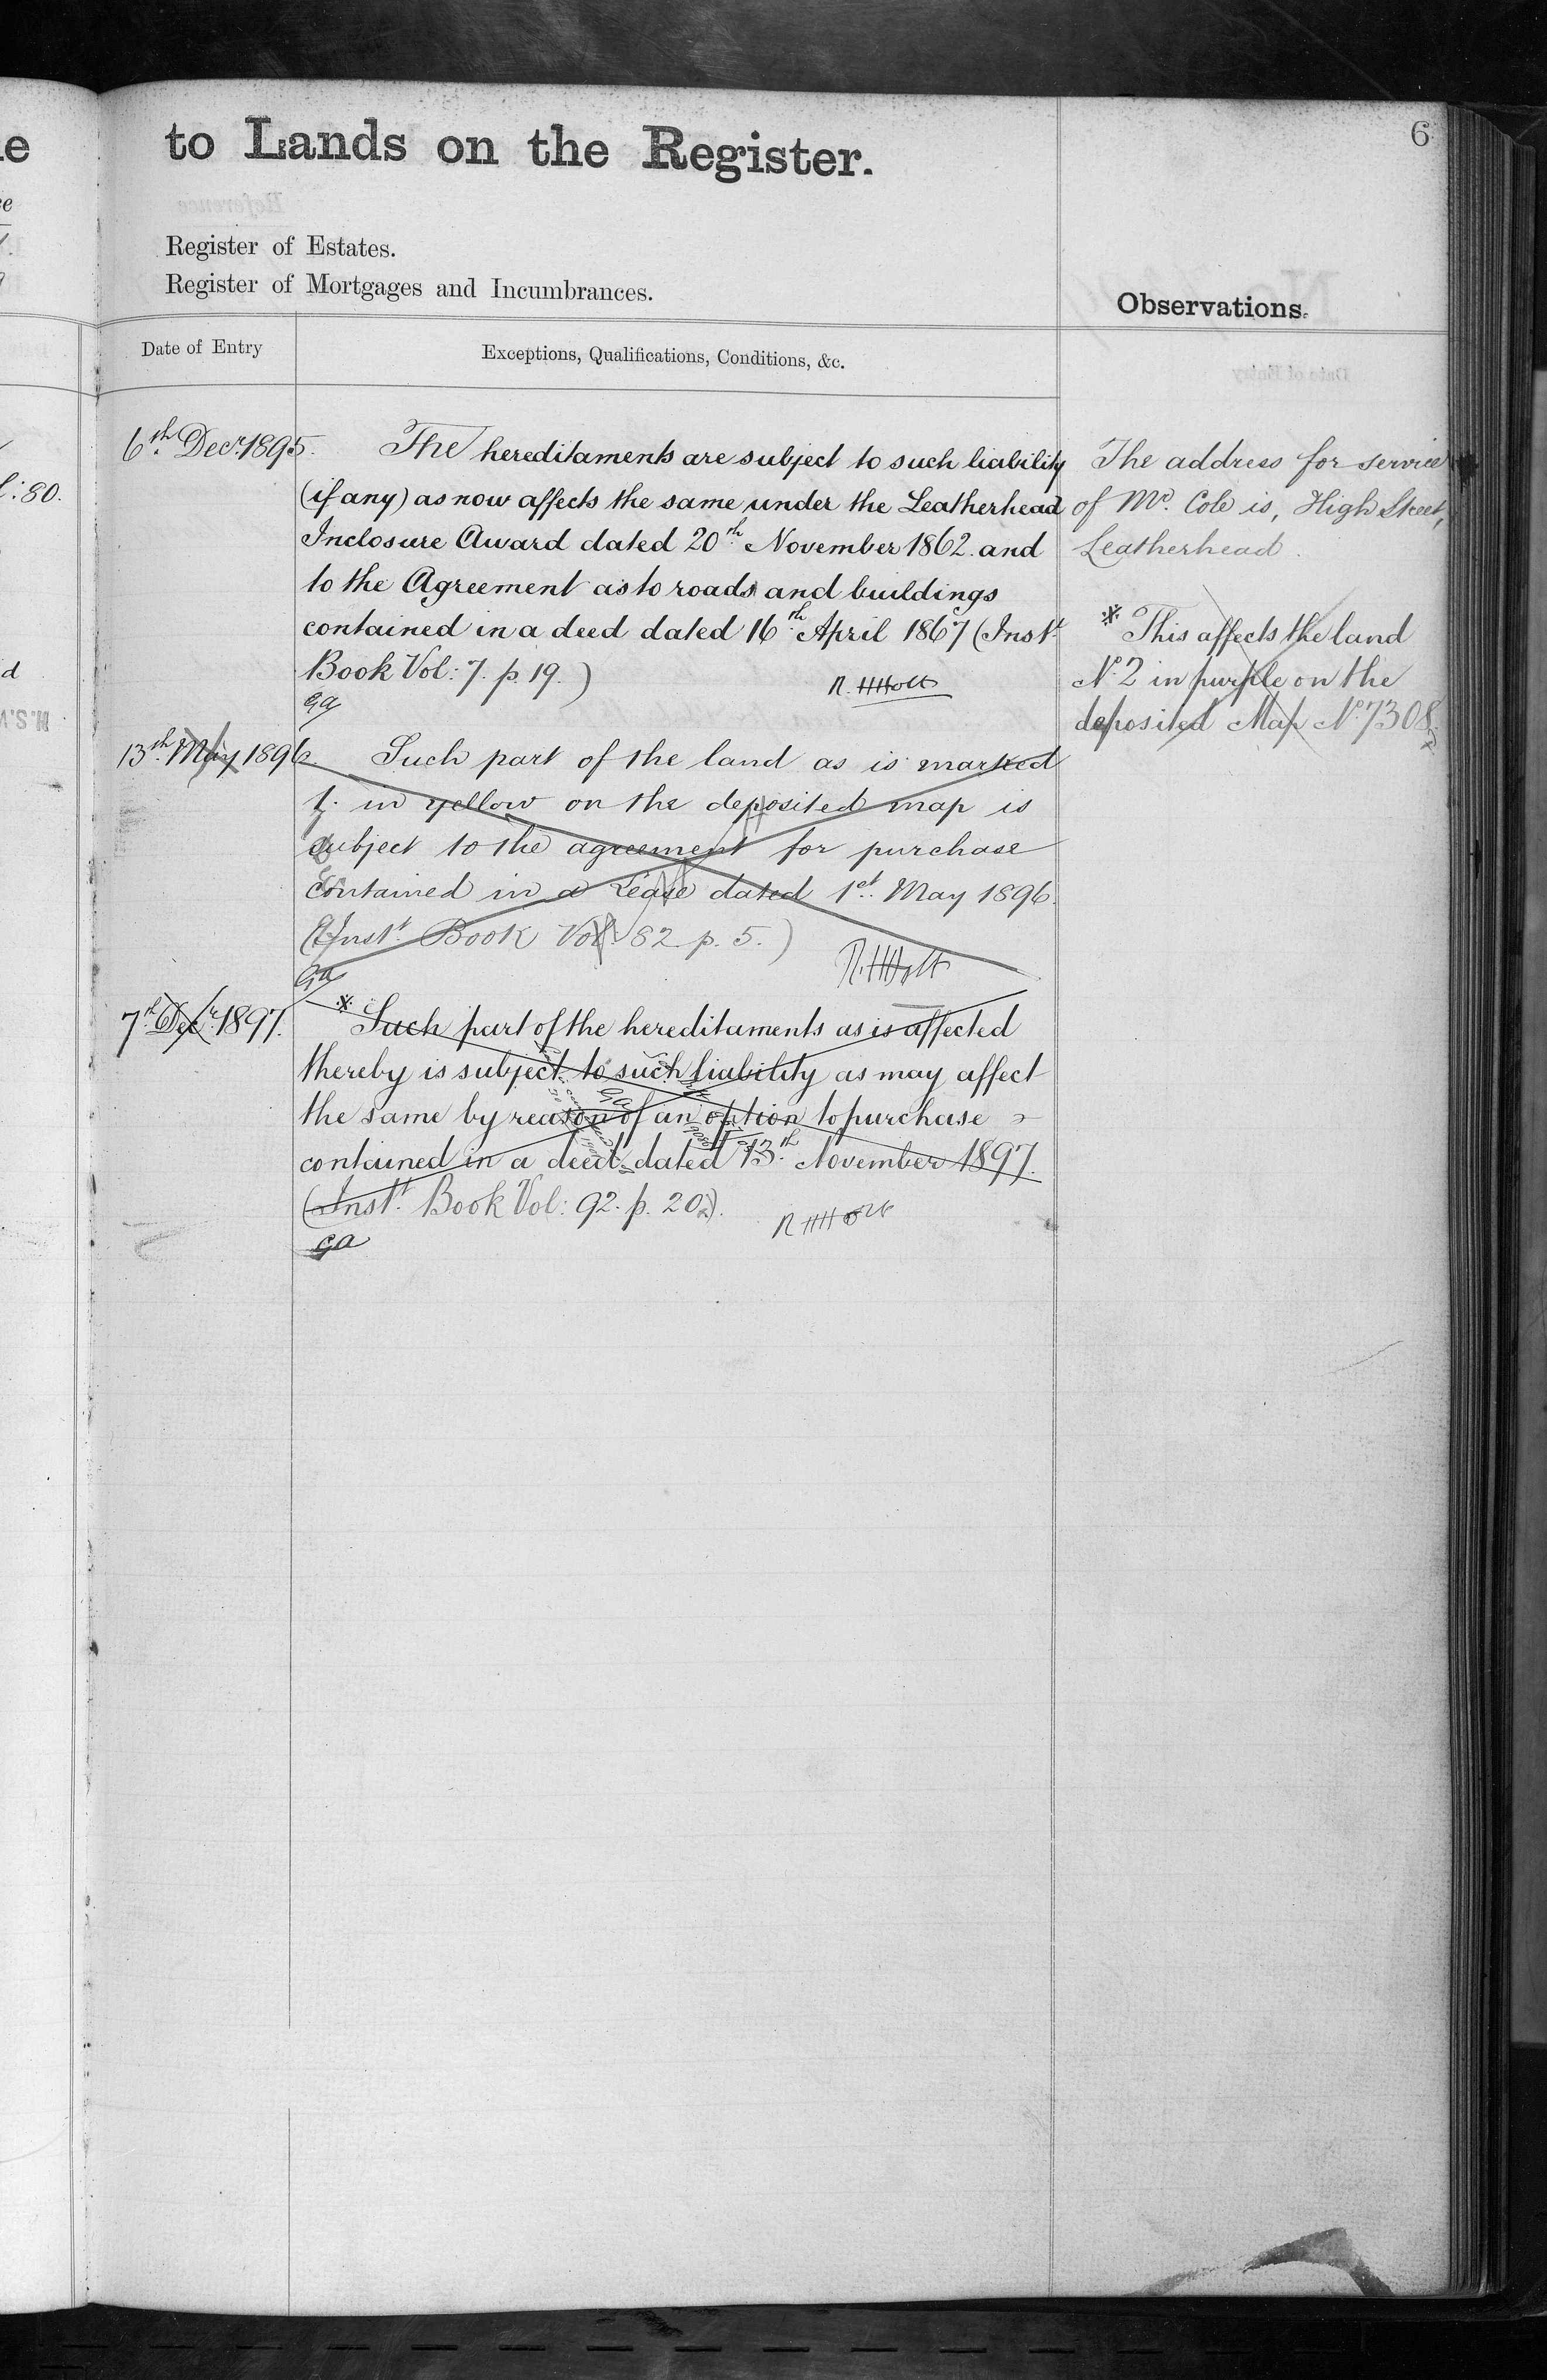 to Lands on the Register.
6
Register of Estates.
Register of Mortgages and Incumbrances.
Observations.
Date of Entry
Exceptions, Qualifications, Conditions, &c.
6th Decr. 1895.
The hereditaments are subject to such liability
(if any) as now affects the same under the Leatherhead
Inclosure Award dated 20th November 1862. and
to the Agreement as to roads and buildings
contained in a deed dated 16th April 1867 (Instt.
Book Vol: 7. p. 19.)
R. H Holt
GA
13th May 1896.
Such part of the land as is marked
1. in yellow on the deposited map is
subject to the agreement for purchase
contained in a Lease dated 1st. May 1896.
(Instt. Book Vol: 82 p. 5.)
R. H Holt
GA
7th Decr. 1897.
* Such part of the hereditaments as is affected
thereby is subject to such liability as may affect
the same by reason of an option to purchase
contained in a deed dated 13th November 1897.
(Instt. Book Vol: 92. p. 20.).
R H Holt
GA
The address for service
of Mr. Cole is, High Street,
Leatherhead.
* This affects the land
No. 2 in purple on the
deposited Map No. 7308.
l: 80.